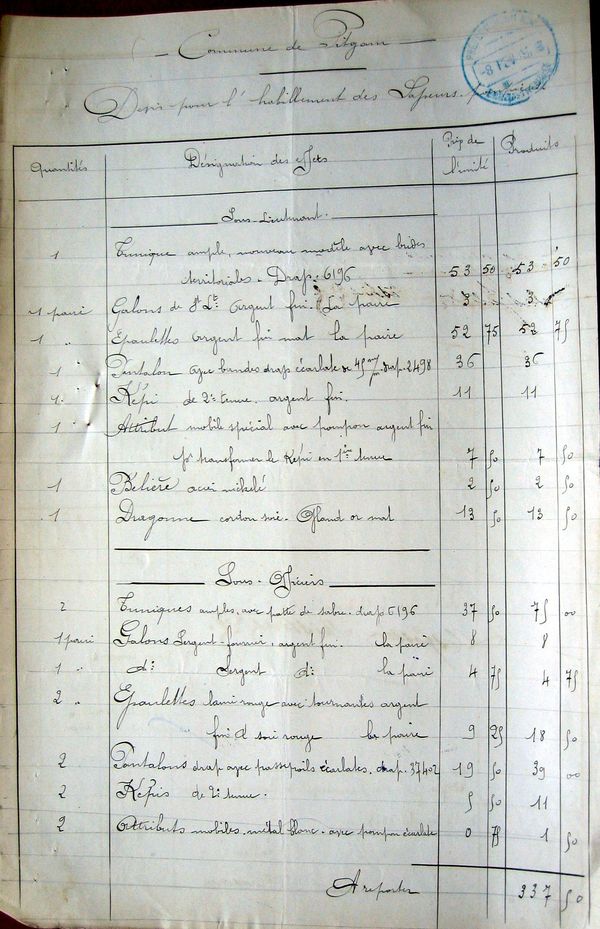 Commune de Pitgam
Devis pour l'habillement des Sapeurs-
Quantités Désignation des effets Prix de l'unité Produits
Sous-Lieutenant.
1 Tunique ample, nouveau modèle avec brides
territoriales. Drap. 6196 53 50 53 50
1 paire Galons de St Lt. argent fin. La paire 3 3
1 " Epaulettes argent fin mat la paire 52 75 52 75
1 Pantalon avec bandes drap écarlate de 45 m/m drap. 2498 36 36
1 Képi de 2e tenue. argent fin. 11 11
1 Attribut mobile spécial avec pompon argent fin
pr transformer le Képi en 1ère tenue 7 50 7 50
1 Bélière acier nickelé 2 50 2 50
1 Dragonne cordon soie. Gland or mat 13 50 13 50
Sous-Officiers
2 Tuniques amples, avec patte de sabre. drap 6196 37 50 75 00
1 paire Galons Sergent-fourrier, argent fin. la paire 8 8
1 " do Sergent do la paire 4 75 4 75
2 " Epaulettes laine rouge avec tournantes argent
fin & soie rouge la paire 9 25 18 50
2 Pantalons drap avec passepoils écarlates. drap. 37402 19 50 39 00
2 Képis de 2e tenue. 5 50 11
2 Attributs mobiles. métal blanc. avec pompon écarlate 0 75 1 50
A reporter 337 50